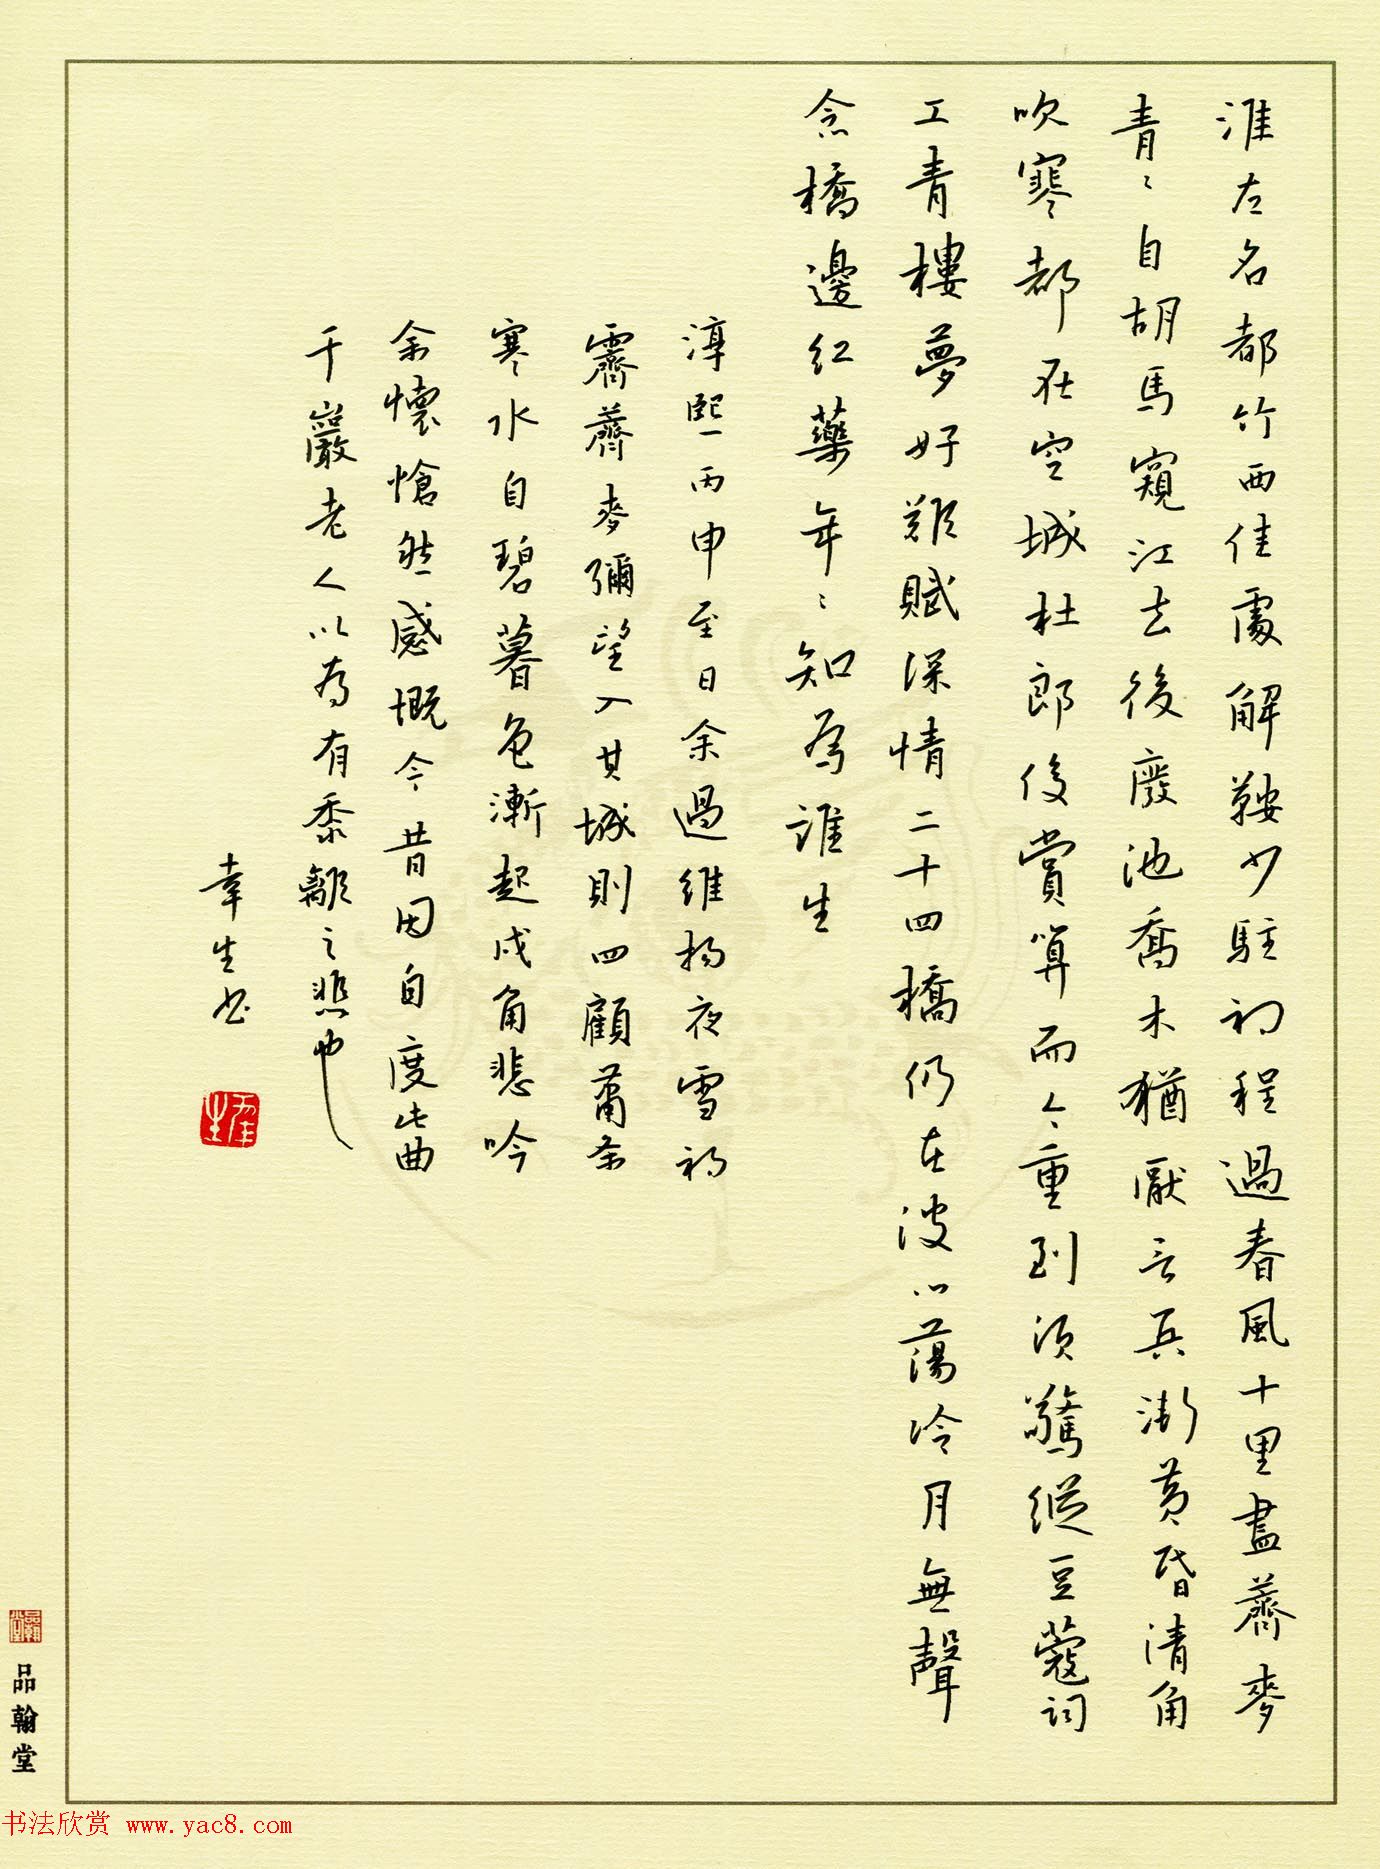 淮左名都竹西佳處解鞍少駐初程過春風十里盡薺麥
青〻自胡馬窺江去後廢池喬木猶厭言兵漸黃昏清角
吹寒都在空城杜郎俊賞算而今重到須驚縱豆蔻詞
工青樓夢好難賦深情二十四橋仍在波心蕩冷月無聲
念橋邊紅藥年〻知為誰生
淳熙丙申至日余過維揚夜雪初
霽薺麥彌望入其城則四顧蕭条
寒水自碧暮色漸起戍角悲吟
余懷愴然感慨今昔因自度此曲
千巖老人以為有黍離之悲也
幸生书
品翰堂
品翰堂
书法欣赏 www.yac8.com